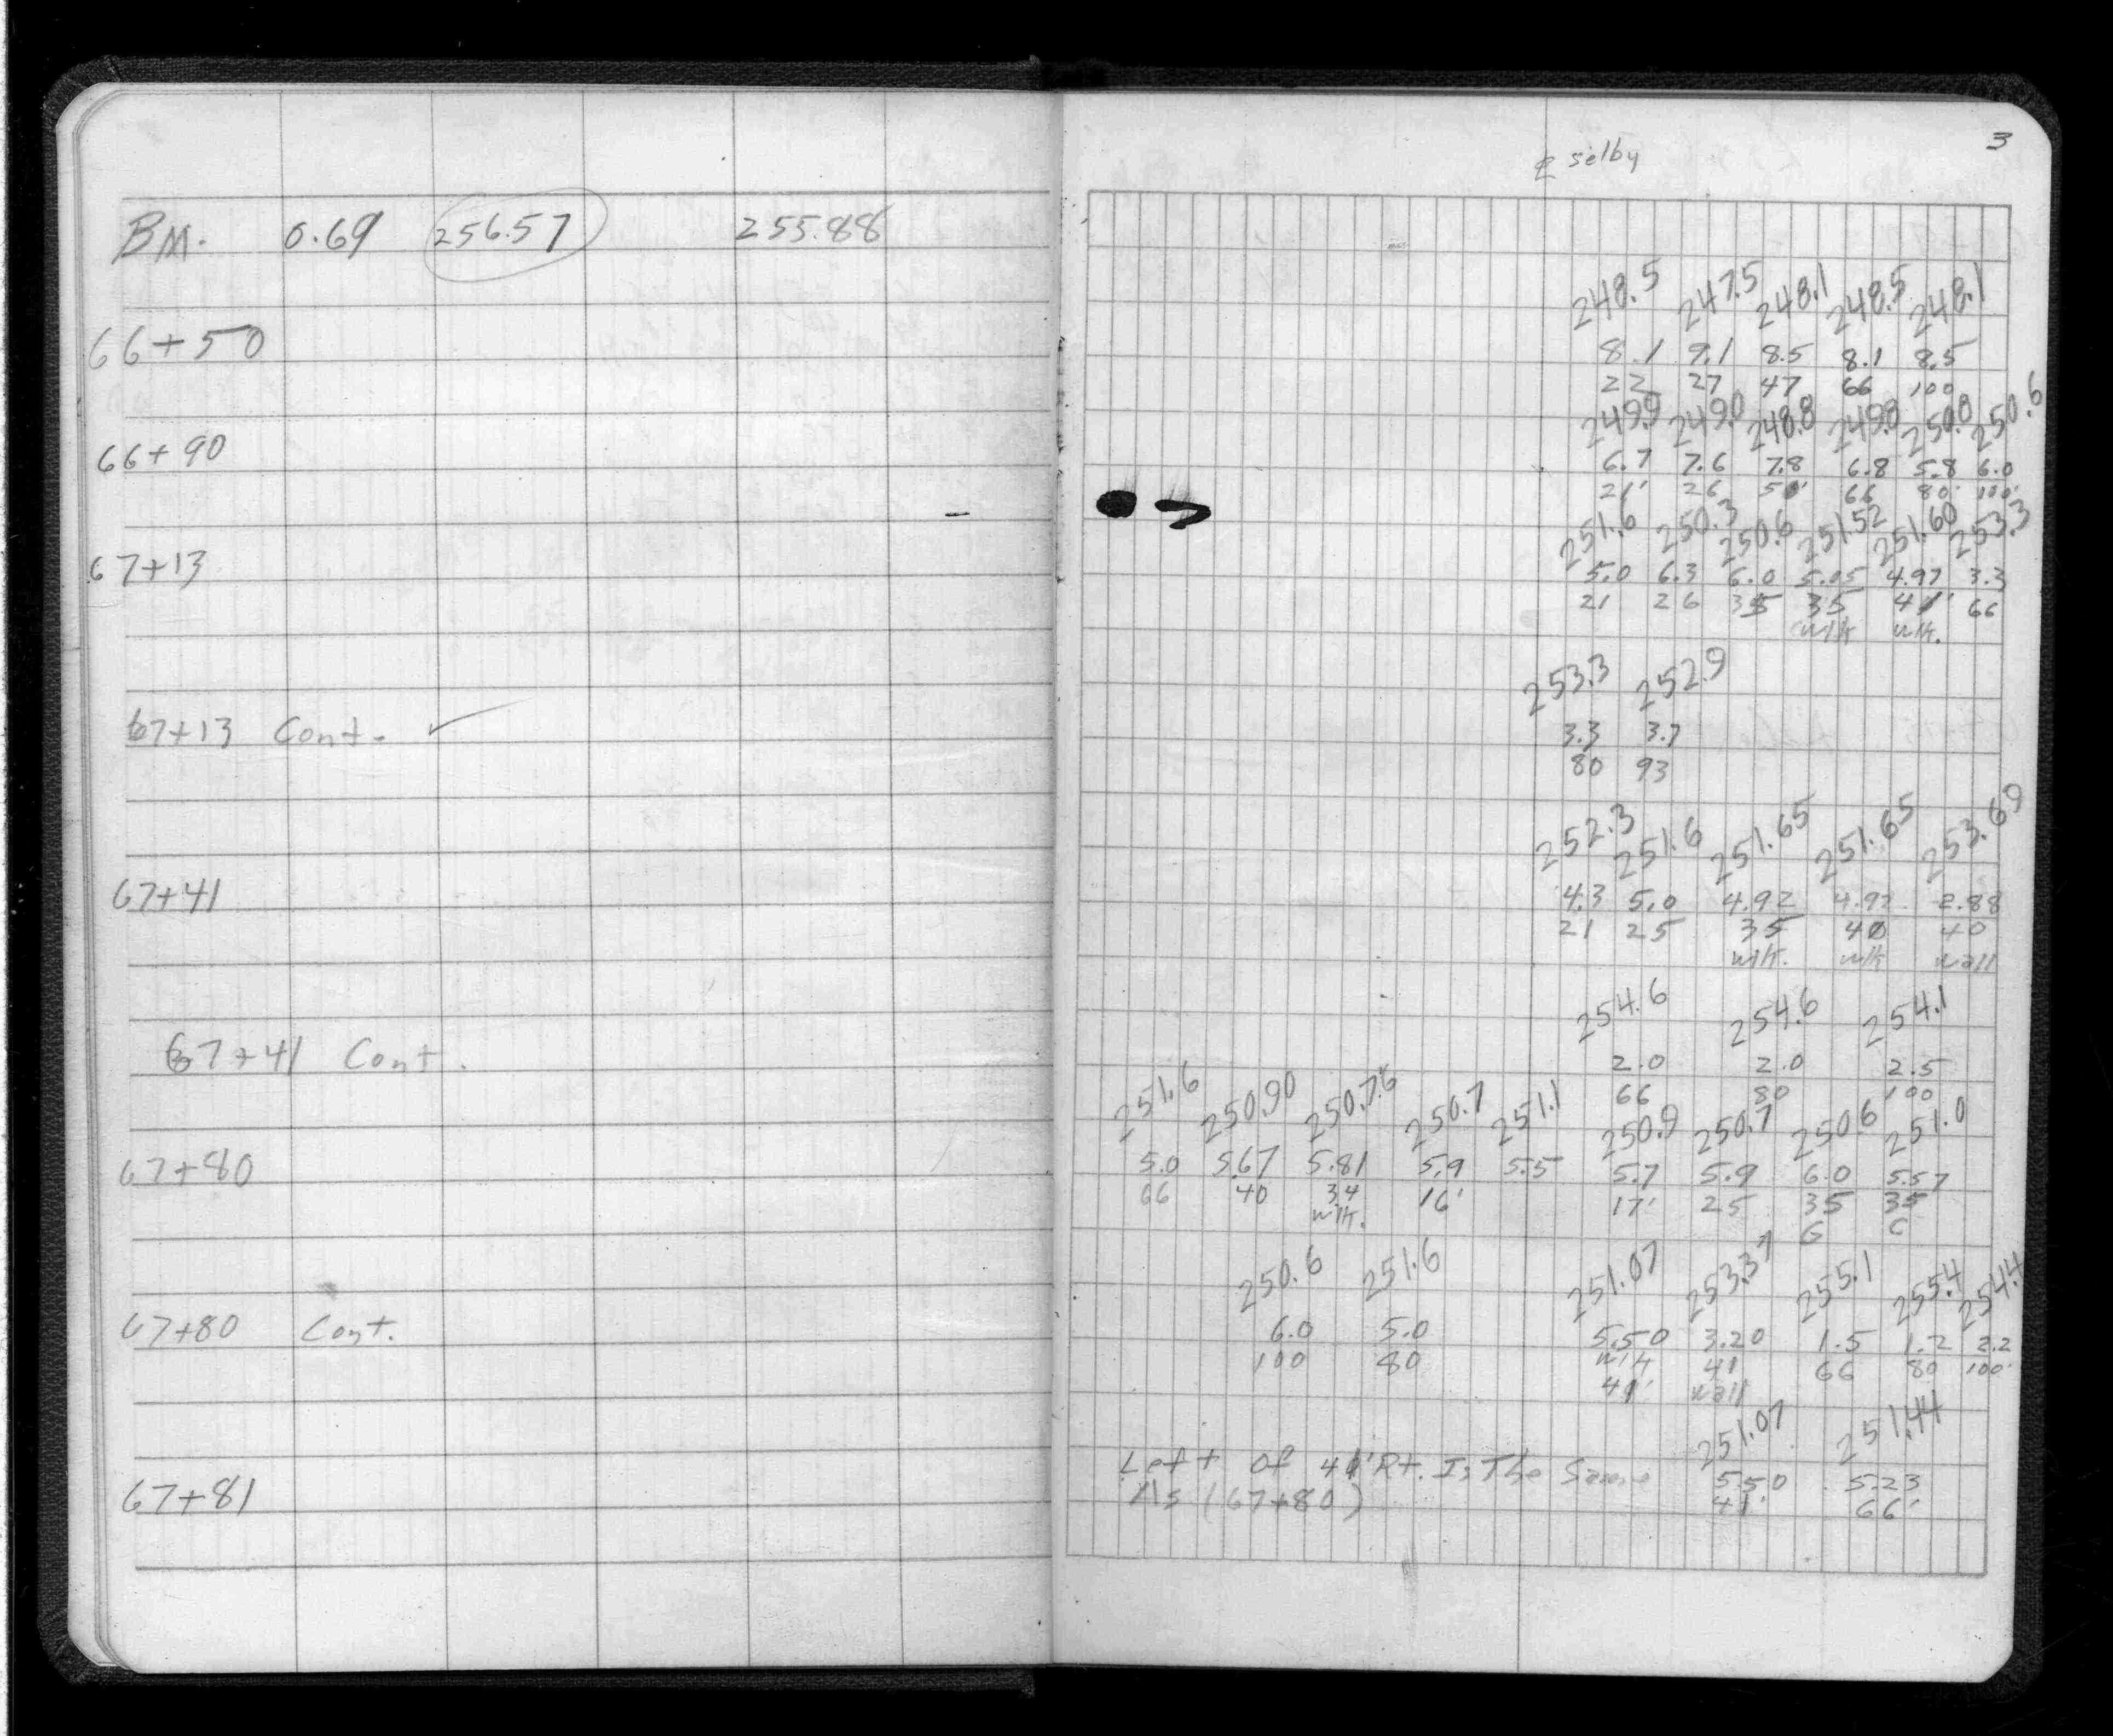 3
℄ selby
BM. 0.69 256.57 255.88
248.5 247.5 248.1 248.5 248.1
66+50 8.1 9.1 8.5 8.1 8.5
22 27 47 66 100
249.9 249.0 248.8 249.8 250.8 250.6
66+90 6.7 7.6 7.8 6.8 5.8 6.0
21' 26 50' 66 80' 100'
251.6 250.3 250.6 251.52 251.60 253.3
67+13 5.0 6.3 6.0 5.05 4.97 3.3
21 26 35 35 41' 66
wlk wlk.
253.3 252.9
67+13 Cont. ✓ 3.3 3.7
80 93
252.3 251.6 251.65 251.65 253.69
67+41 4.3 5.0 4.92 4.92 2.88
21 25 35 40 40
wlk. wlk wall
254.6 254.6 254.1
67+41 Cont. 2.0 2.0 2.5
66 80 100
251.6 250.90 250.76 250.7 251.1 250.9 250.7 250.6 251.0
67+80 5.0 5.67 5.81 5.9 5.5 5.7 5.9 6.0 5.57
66 40 34 16' 17' 25 35 35
wlk. G C
250.6 251.6 251.07 253.37 255.1 255.4 254.4
67+80 Cont. 6.0 5.0 5.50 3.20 1.5 1.2 2.2
100 80 wlk 41 66 80 100'
41' wall
251.07 251.44
67+81 Left Of 41' Rt. Is The Same 5.50 5.23
As (67+80) 41' 66'